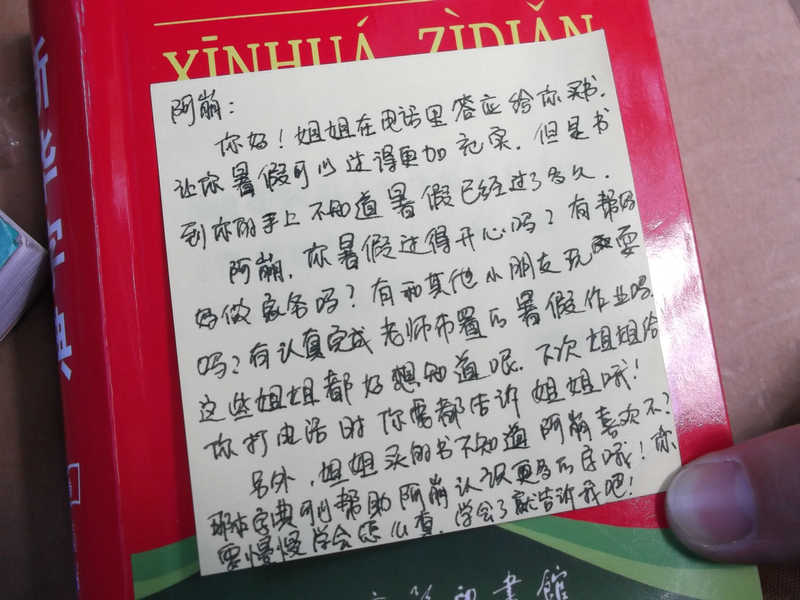 XĪNHUÁ ZÌDIǍN
新华字典
阿崩：
你好！姐姐在电话里答应给你买书，
让你暑假可以过得更加充实。但是书
到你的手上不知道暑假已经过了多久。
阿崩，你暑假过得开心吗？有帮妈
妈做家务吗？有和其他小朋友玩耍
吗？有认真完成老师布置的暑假作业吗？
这些姐姐都好想知道呢。下次姐姐给
你打电话时你需都告诉姐姐哦！
另外，姐姐买的书不知道阿崩喜欢不？
那本字典可以帮助阿崩认识更多的字哦！你
要慢慢学会怎么查，学会了就告诉我吧！
印書館